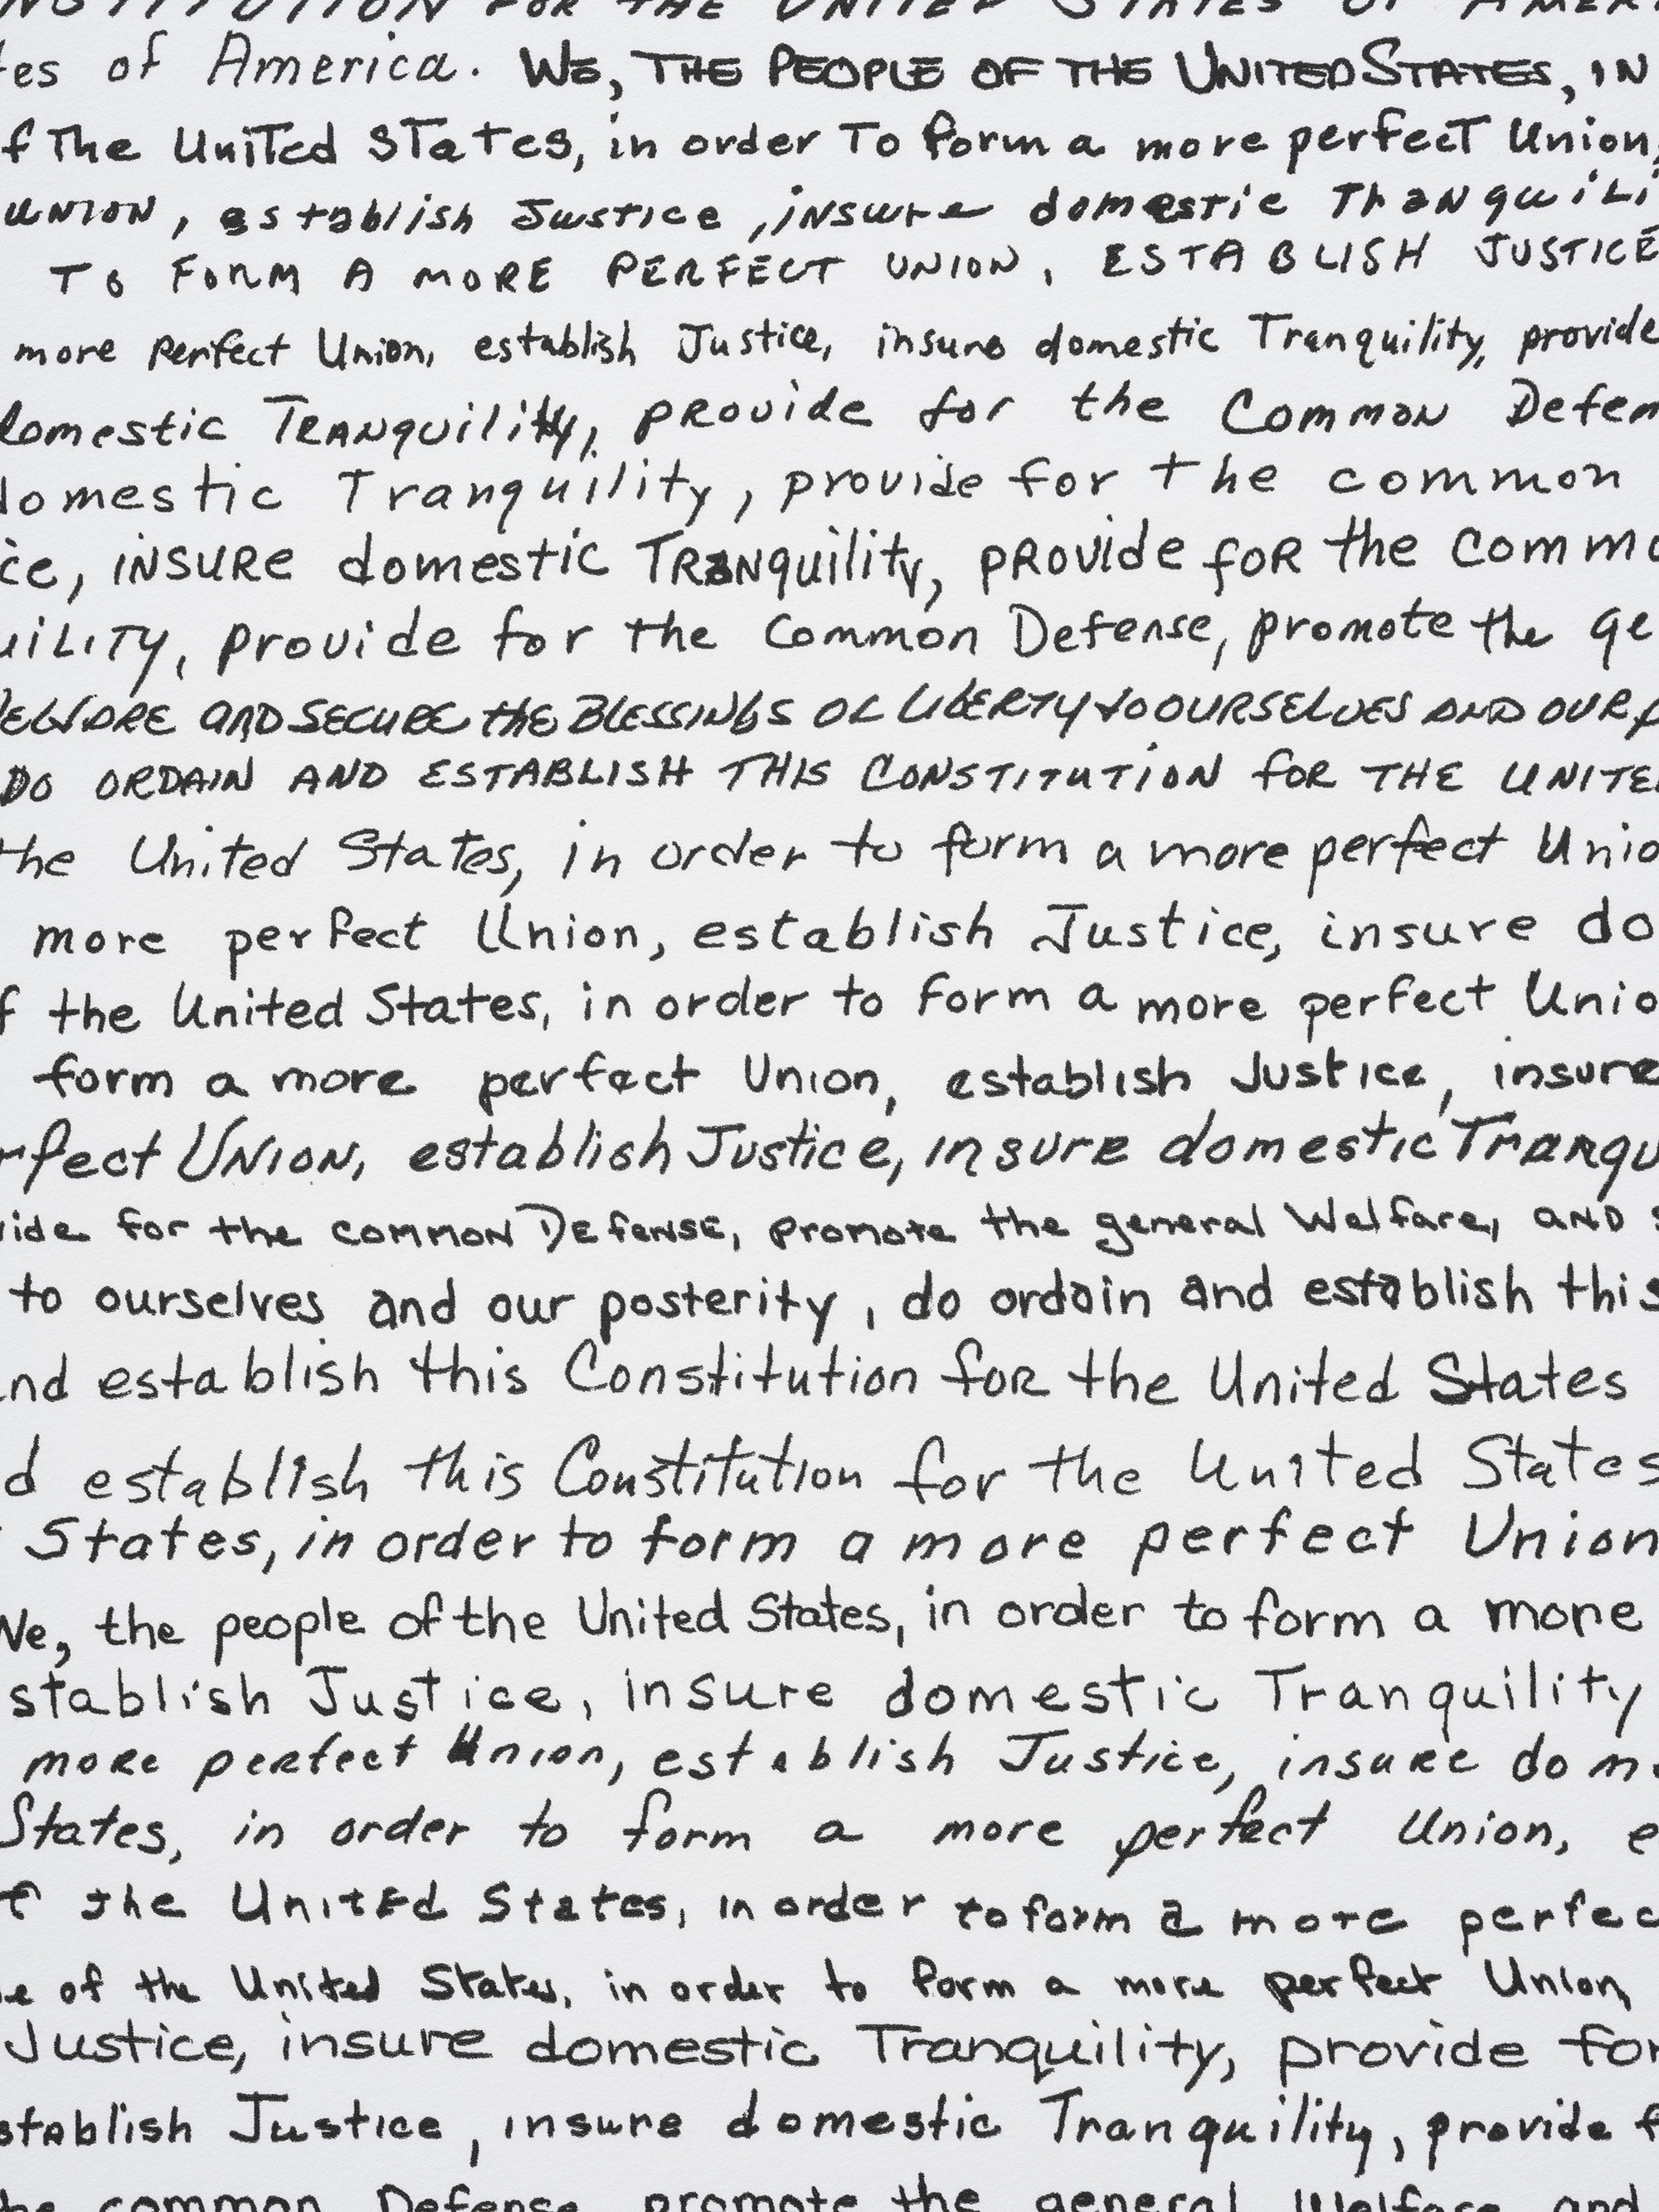 NSTITUTION FOR THE UNITED STATES OF AMER
tes of America. WE, THE PEOPLE OF THE UNITED STATES, IN
f The UniTed STaTes, in order To form a more perfecT Union,
UNION, establish Justice, iNsure domestic TranquiLi
TO FORM A MORE PERFECT UNION, ESTABLISH JUSTICE
more Perfect Union, establish Justice, insure domestic Tranquility, provide
domestic TRANquility, PROvide for the Common Defen
domestic Tranquility, provide for the common
ce, iNSURe domestic TRaNquility, PROvide foR the Commo
uiLITY, provide for the Common Defense, promote the ge
WELFARE AND SECURE the BLESSINGS OF LIBERTY to OURSELVES AND OUR P
DO ORDAIN AND ESTABLISH THIS CONSTITUTION FOR THE UNITED
the United States, in order to form a more perfect Unio
more perfect Union, establish Justice, insure do
f the United States, in order to form a more perfect Unio
form a more perfect Union, establish Justice, insure
rfect UNION, establish Justice, insure domestic Tranqu
vide for the common DEfeNSE, promote the general Welfare, AND s
to ourselves and our posterity, do ordain and establish this
and establish this Constitution foR the United States
d establish this Constitution for the United States
States, in order to form a more perfect Union
We, the people of the United States, in order to form a more
stablish Justice, insure domestic Tranquility
more perfect Union, establish Justice, insure dome
States, in order to form a more perfect Union, e
f the United States, in order to form a more perfec
le of the United States, in order to form a more perfect Union,
Justice, insure domestic Tranquility, provide for
stablish Justice, insure domestic Tranquility, provide f
he common Defense, promote the general Welfare, and